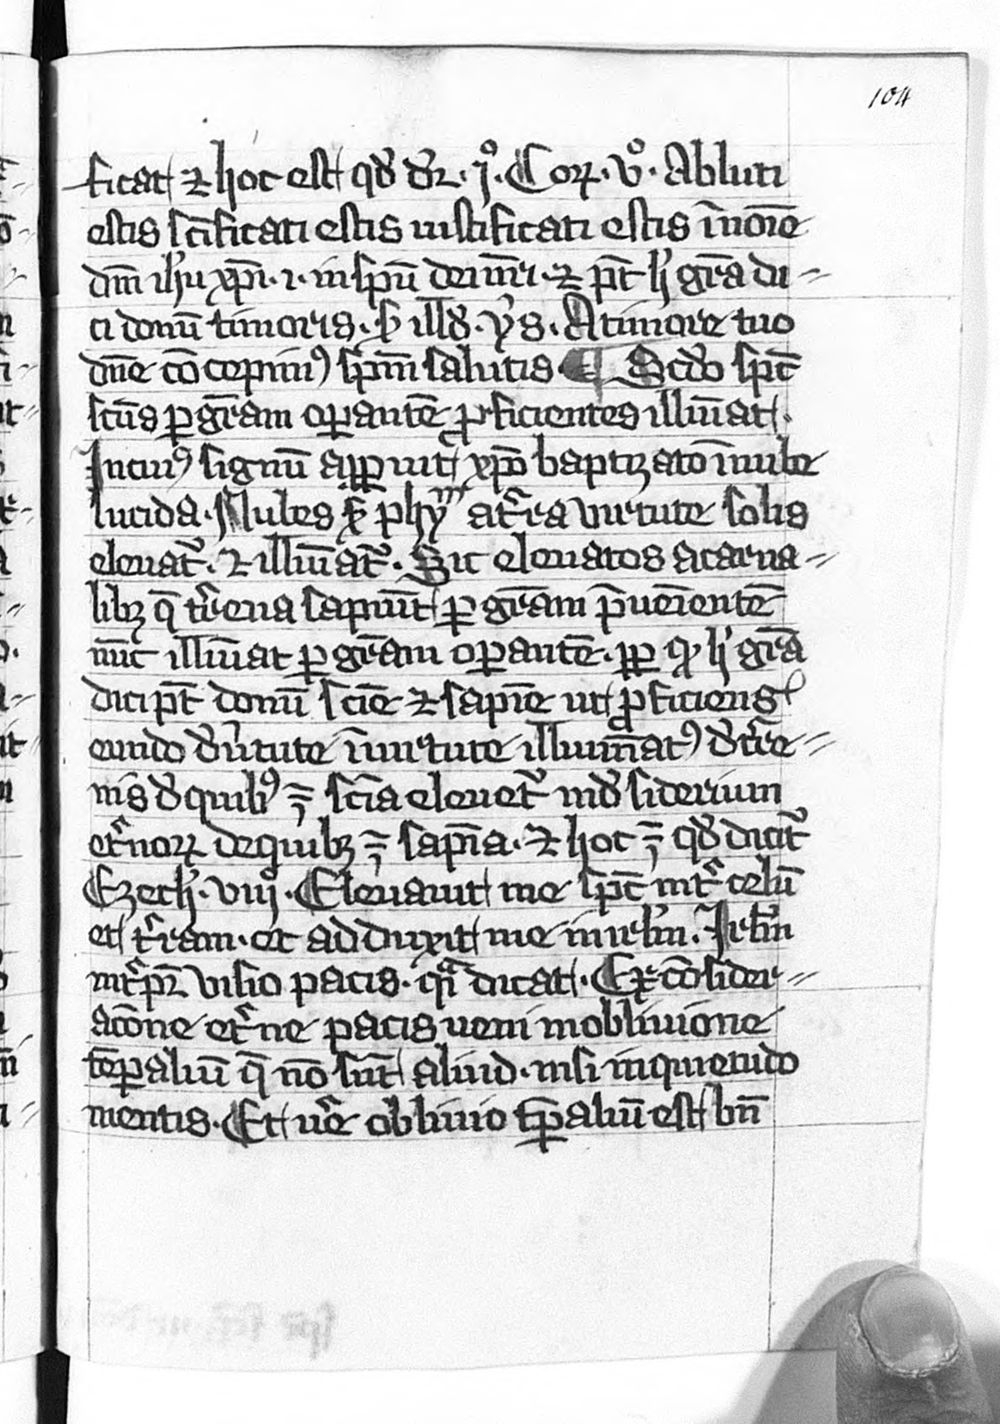 104
ficat ⁊ hoc est qđ dr̄. jº. Coꝝ. vº. Abluti
estis sc̄ificati estis iustificati estis ī noīe
dn̄i ih̓u xp̄i. ⁊ in sp̄u dei nr̄i. ⁊ pt̄ h̓ gr̄a di
ci donū timoris. illđ. ẏs. A timore tuo
dn̄e cōcepimꝰ sp̄m salutis ¶ Scđo sp̄c
sc̄us ꝑ gr̄am oꝑantē ꝓficientes illūīat.
In cuiꝰ signū apꝑuit xp̄o baptizato ī nube
lucida. Nubes phyᵐ at̄ͥra virtute solis
eleuat᷑. ⁊ illūīat᷑. Sic eleuatos a carna
libꝫ q̄ tr̄ena sapiūt ꝑ gr̄am p̄ueīentē
nūc illūīat ꝑ gr̄am oꝑantē. ꝓꝑ h̓ gr̄a
dici pt̄ donū scīe ⁊ sapīe ut ꝓficiens
eundo đ v̓tute ī virtute illumīatꝰ đ t̓re
nis đ quibꝰ ē sc̄ia eleuet᷑ ad siderium
et̓noꝝ de quibꝫ ē sapīa. ⁊ hoc ē qđ dicit᷑
Ezech̓. viij. Eleuauit me sp̄c int̓ celū
et t̓ram. et adduxit me in ir̄lm̄. Irl̄m̄
int̓p̄r visio pacis. q̄ͣ dicat. Ex cōsider
acōne et̓ne pacis ueni in obliuione
tēꝑaliū q̄ nō sūt aliud. nisi inquietudo
mentis. Et ūe obliuio tꝑaliū est bn̄